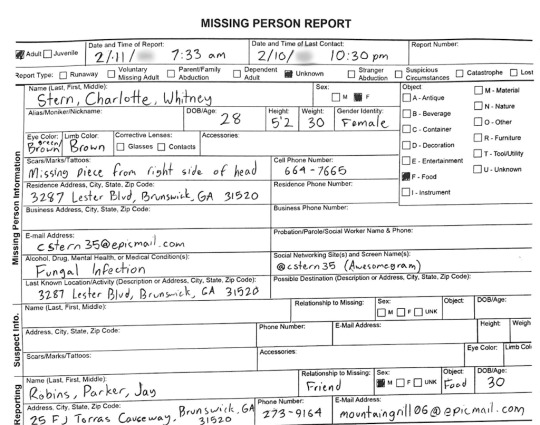 MISSING PERSON REPORT
Adult Juvenile
Date and Time of Report:
2/11/ 7:33 am
Date and Time of Last Contact:
2/10/ 10:30 pm
Report Number:
Report Type: Runaway Voluntary Missing Adult Parent/Family Abduction Dependent Adult Unknown Stranger Abduction Suspicious Circumstances Catastrophe Lost
Missing Person Information
Name (Last, First, Middle):
Stern, Charlotte, Whitney
Sex:
M F
Object
A - Antique
B - Beverage
C - Container
D - Decoration
E - Entertainment
F - Food
I - Instrument
M - Material
N - Nature
O - Other
R - Furniture
T - Tool/Utility
U - Unknown
Alias/Moniker/Nickname:
DOB/Age:
28
Height:
5'2
Weight:
30
Gender Identity:
Female
Eye Color:
green/
Brown
Limb Color:
Brown
Corrective Lenses:
Glasses Contacts
Accessories:
Scars/Marks/Tattoos:
Missing piece from right side of head
Cell Phone Number:
664-7665
Residence Address, City, State, Zip Code:
3287 Lester Blvd, Brunswick, GA 31520
Residence Phone Number:
Business Address, City, State, Zip Code:
Business Phone Number:
E-mail Address:
cstern35@epicmail.com
Probation/Parole/Social Worker Name & Phone:
Alcohol, Drug, Mental Health, or Medical Condition(s):
Fungal Infection
Social Networking Site(s) and Screen Name(s):
@cstern35 (Awesomegram)
Last Known Location/Activity (Description or Address, City, State, Zip Code):
3287 Lester Blvd, Brunswick, GA 31520
Possible Destination (Description or Address, City, State, Zip Code):
Suspect Info.
Name (Last, First, Middle):
Relationship to Missing:
Sex:
M F UNK
Object:
DOB/Age:
Address, City, State, Zip Code:
Phone Number:
E-Mail Address:
Height:
Weigh
Scars/Marks/Tattoos:
Accessories:
Eye Color:
Limb Col
Reporting
Name (Last, First, Middle):
Robins, Parker, Jay
Relationship to Missing:
Friend
Sex:
M F UNK
Object:
Food
DOB/Age:
30
Address, City, State, Zip Code:
25 FJ Torras Causeway, Brunswick, GA
31520
Phone Number:
273-9164
E-Mail Address:
mountaingrill06@epicmail.com